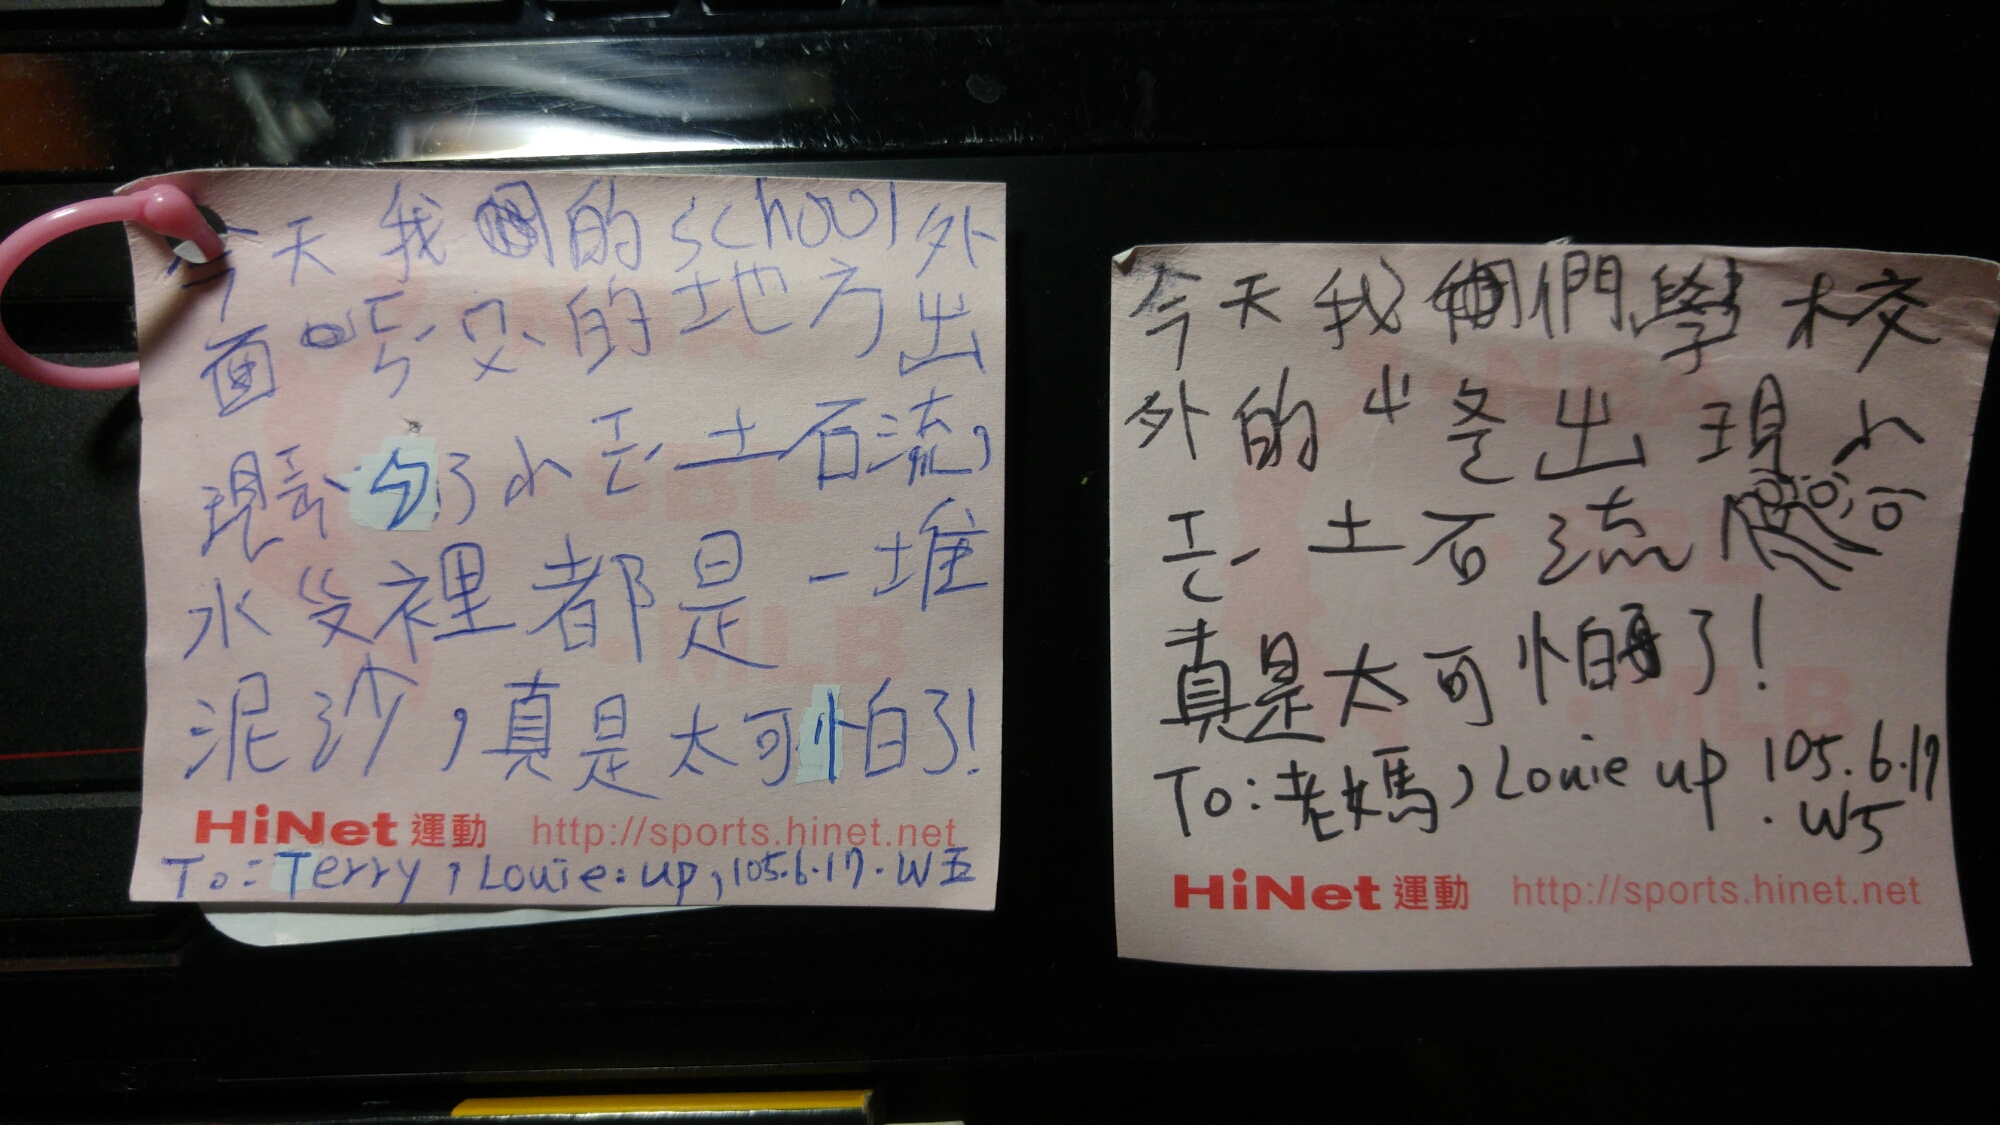 今天我們的school外
面ㄎㄨˋ的地方出
現了小ㄜˋ土石流,
水ㄠ裡都是一堆
泥沙,真是太可怕了!
HiNet 運動 http://sports.hinet.net
To: Terry, Louie: up, 105.6.17. W五
今天我們學校
外的出現小
土石流
真是太可怕了!
To: 老媽, Louie up 105.6.17
. W5
HiNet 運動 http://sports.hinet.net